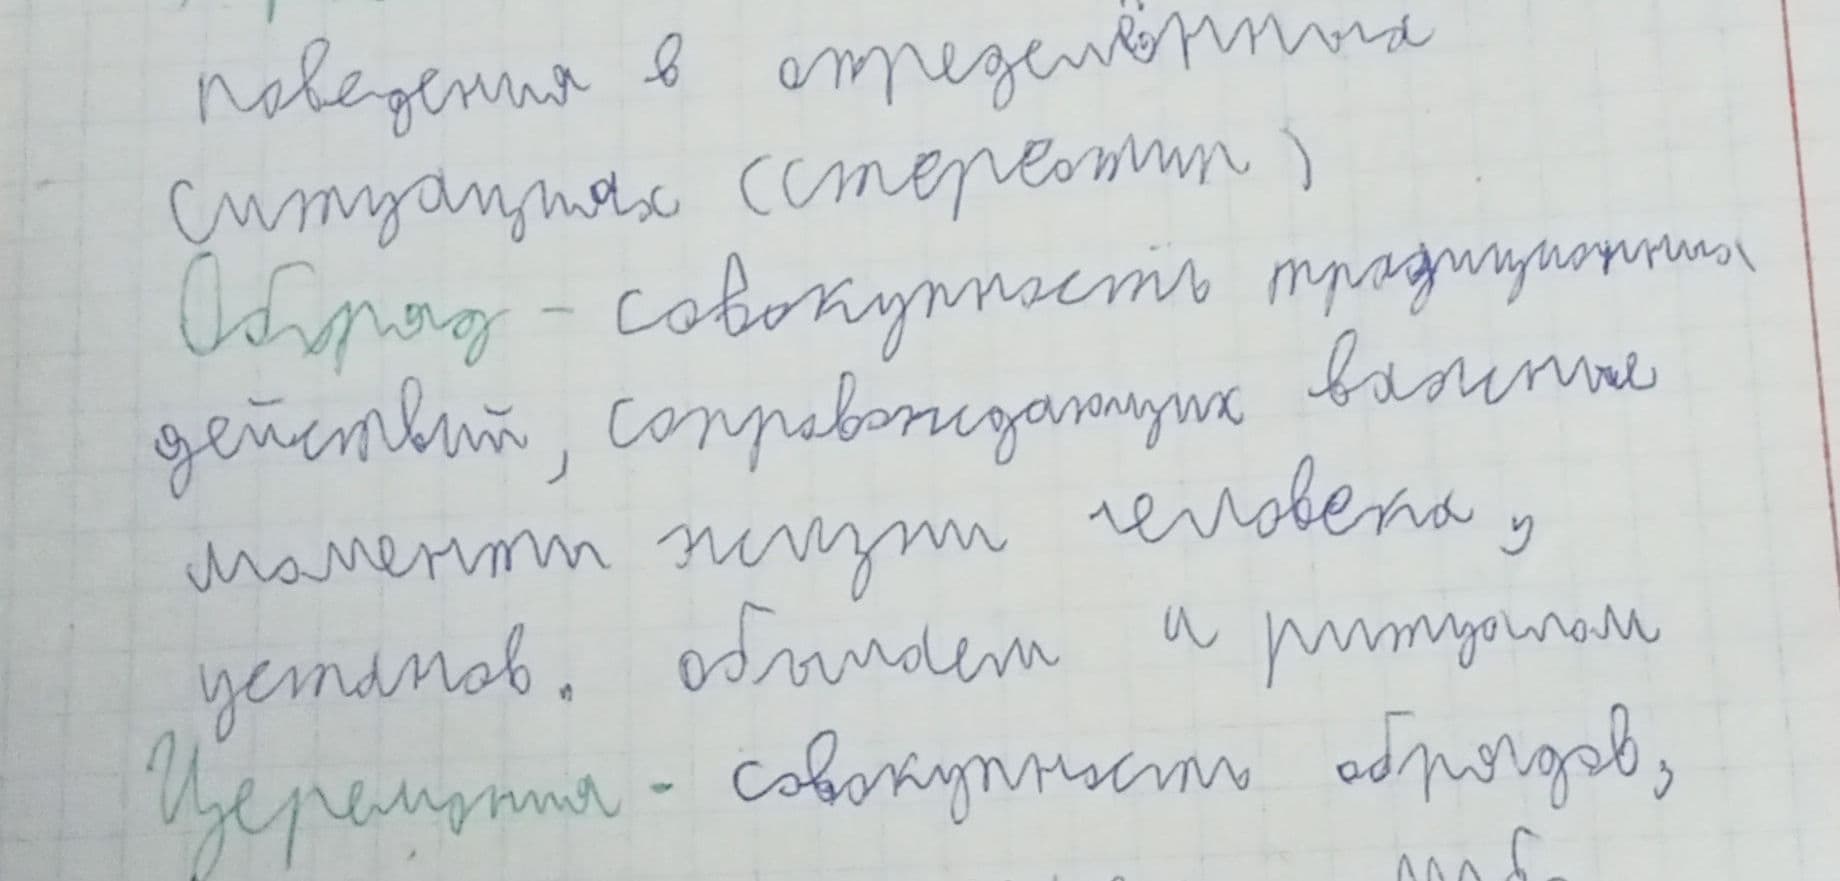 поведения в определённых
ситуациях (стереотип)
Обряд - совокупность традиционных
действий, сопровождающих важные
моменты жизни человека,
установ. обычаем и ритуалом
Церемония - совокупность обрядов,